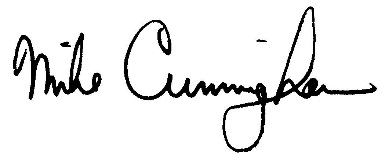 Mike Cunningham